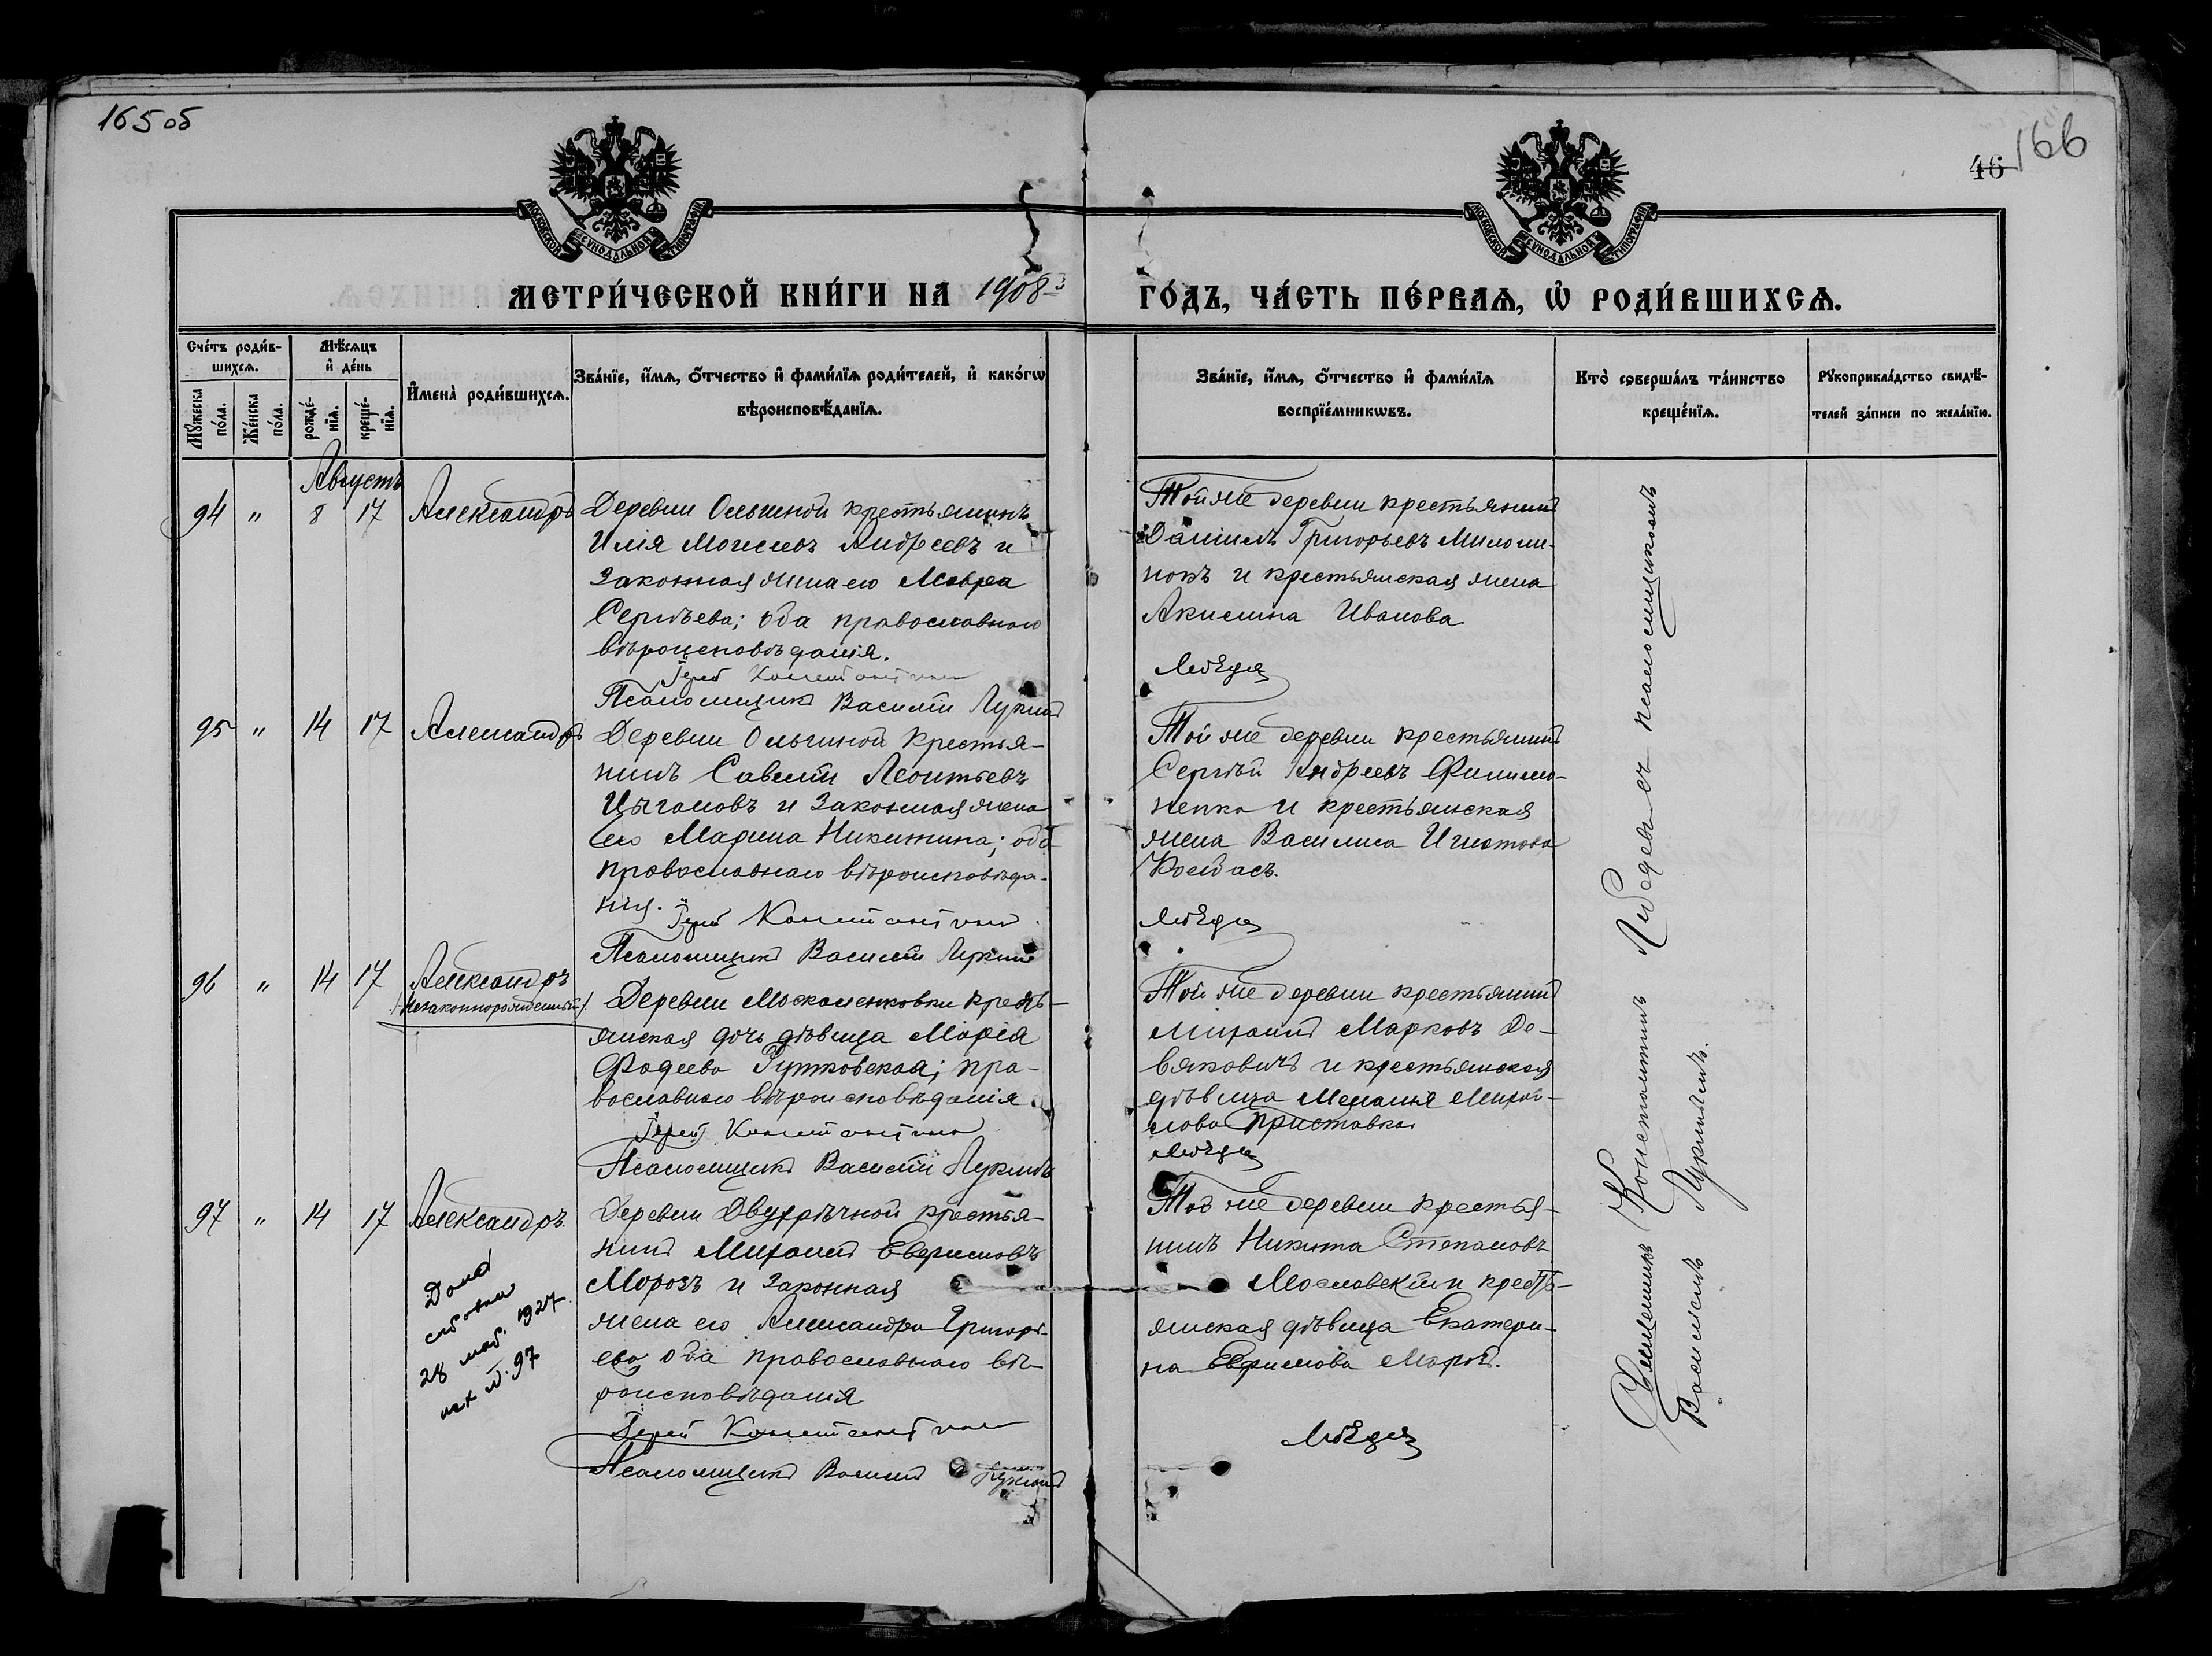 165 об
166
46
МОСКОВСКОЙ СѴНОДАЛЬНОЙ ТИПОГРАФІИ
МОСКОВСКОЙ СѴНОДАЛЬНОЙ ТИПОГРАФІИ
МЕТРИ́ЧЕСКОЙ КНИ́ГИ НА 1908
ГО́ДЪ, ЧА́СТЬ ПЕ́РВАѦ, Ѡ҆ РОДИ́ВШИХСѦ.
Сче́тъ роди́в-
шихсѧ.
Мѣ́сѧцъ
и҆ де́нь
Мꙋ́жеска
по́ла.
Же́нска
по́ла.
рожде́-
нїѧ.
креще́-
нїѧ.
И҆мена̀ роди́вшихсѧ.
Зва́нїе, и҆́мѧ, ѻ҆́тчество и҆ фами́лїѧ роди́телей, и҆ како́гѡ
вѣроисповѣ́данїѧ.
Зва́нїе, и҆́мѧ, ѻ҆́тчество и҆ фами́лїѧ
воспрїе́мникѡвъ.
Кто̀ соверша́лъ та́инство
креще́нїѧ.
Рꙋкоприкла́дство свидѣ́-
телей за́писи по жела́нїю.
Августъ
94 " 8 17 Александръ
Деревни Ольгиной крестьянинъ
Илія Моисеевъ Андреевъ и
законная жена его Мавра
Сергѣева; оба православнаго
вѣроисповѣданія.
Іерей Константинъ
Псаломщикъ Василій Лукинъ
Той же деревни крестьянинъ
Даніилъ Григорьевъ
и крестьянская жена
Акилина Иванова
95 " 14 17 Александръ
Деревни Ольгиной крестья-
нинъ Савелій Леонтьевъ
Цыгановъ и законная жена
его Марина Никитина; оба
православнаго вѣроисповѣда-
нія.
Іерей Константинъ
Псаломщикъ Василій Лукинъ
Той же деревни крестьянинъ
Сергѣй Андреевъ Филимо-
ненко и крестьянская
жена Василиса Игнатова
96 " 14 17 Александръ
(незаконнорожденный)
Деревни Москаленковки кресть-
янская дочь дѣвица Марія
Фадеева Рутковская; пра-
вославнаго вѣроисповѣданія
Іерей Константинъ
Псаломщикъ Василій Лукинъ
Той же деревни крестьянинъ
Михаилъ Марковъ Де-
вяковичъ и крестьянская
дѣвица Меланія Михай-
лова Приставка
97 " 14 17 Александръ
Деревни Двухрѣчной крестья-
нинъ Михаилъ Евфимовъ
Морозъ и законная
жена его Александра Григорь-
ева оба православнаго вѣ-
роисповѣданія
Іерей Константинъ
Псаломщикъ Василій Лукинъ
Той же деревни крестья-
нинъ Никита Степановъ
Мословскій и кресть-
янская дѣвица Екатери-
на Евфимова Морозъ.
28 1927
97
Священникъ Константинъ Лебедевъ съ псаломщикомъ
Василіемъ